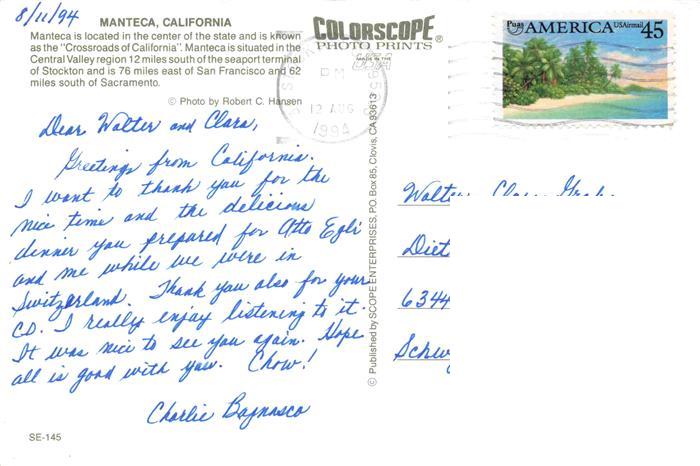 8/11/94
MANTECA, CALIFORNIA
Manteca is located in the center of the state and is known
as the "Crossroads of California". Manteca is situated in the
Central Valley region 12 miles south of the seaport terminal
of Stockton and is 76 miles east of San Francisco and 62
miles south of Sacramento.
© Photo by Robert C. Hansen
Dear Walter and Clara,
Greetings from California.
I want to thank you for the
nice time and the delicious
dinner you prepared for Otto Egli
and me while we were in
Switzerland. Thank you also for your
CD. I really enjoy listening to it.
It was nice to see you again. Hope
all is good with you. Chow!
Charlie Bagnasco
SE-145
COLORSCOPE®
PHOTO PRINTS
MADE IN THE
USA
© Published by SCOPE ENTERPRISES, P.O. Box 85, Clovis, CA 93613
PM
12 AUG
1994
Puas AMERICA USAirmail 45
Walter
Diet
6344